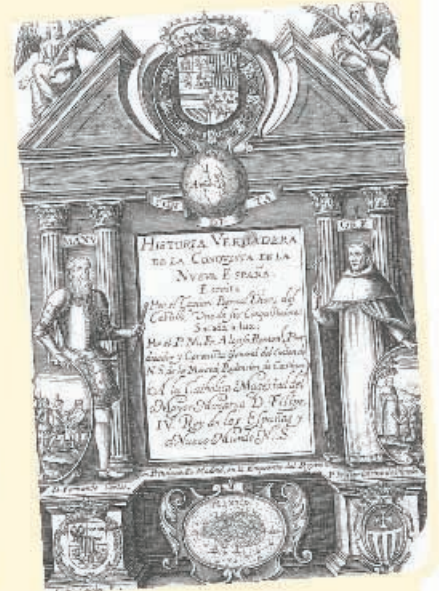 MANV
ORE
HISTORIA VERDADERA
DE LA CONQVISTA DE LA
NVEVA ESPAÑA.
Escrita
Por el Capitan Bernal Diaz del
Castillo, Vno de sus Conquistadores.
Sacada a luz,
Por el P. M. Fr. Alonso Remon, Pre
dicador y Coronista General del Orden de
N. S. de la Merced, Redencion de Cautivos.
A la Catholica Magestad del
Mayor Monarca D. Filipe
IV. Rey de las Españas y
Nuevo Mundo N. S.
en Madrid, en la Emprenta del Reyno
D. Fernando Cortes
MEXICO